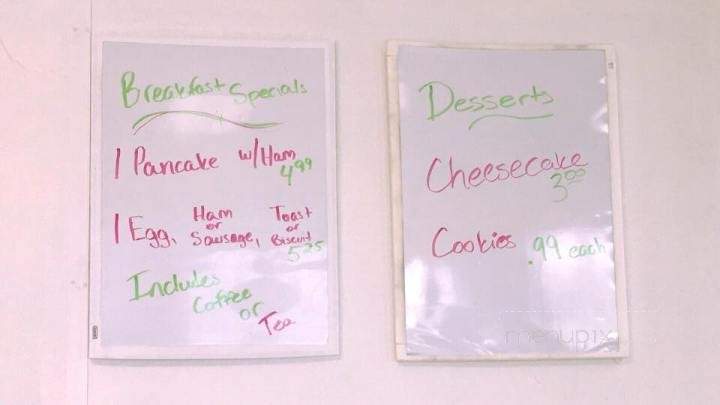 Breakfast Specials
1 Pancake w/Ham
4.99
1 Egg, Ham or Sausage, Toast or Biscuit
5.25
Includes
Coffee
or
Tea
Desserts
Cheesecake
3.00
Cookies .99 each
menupix